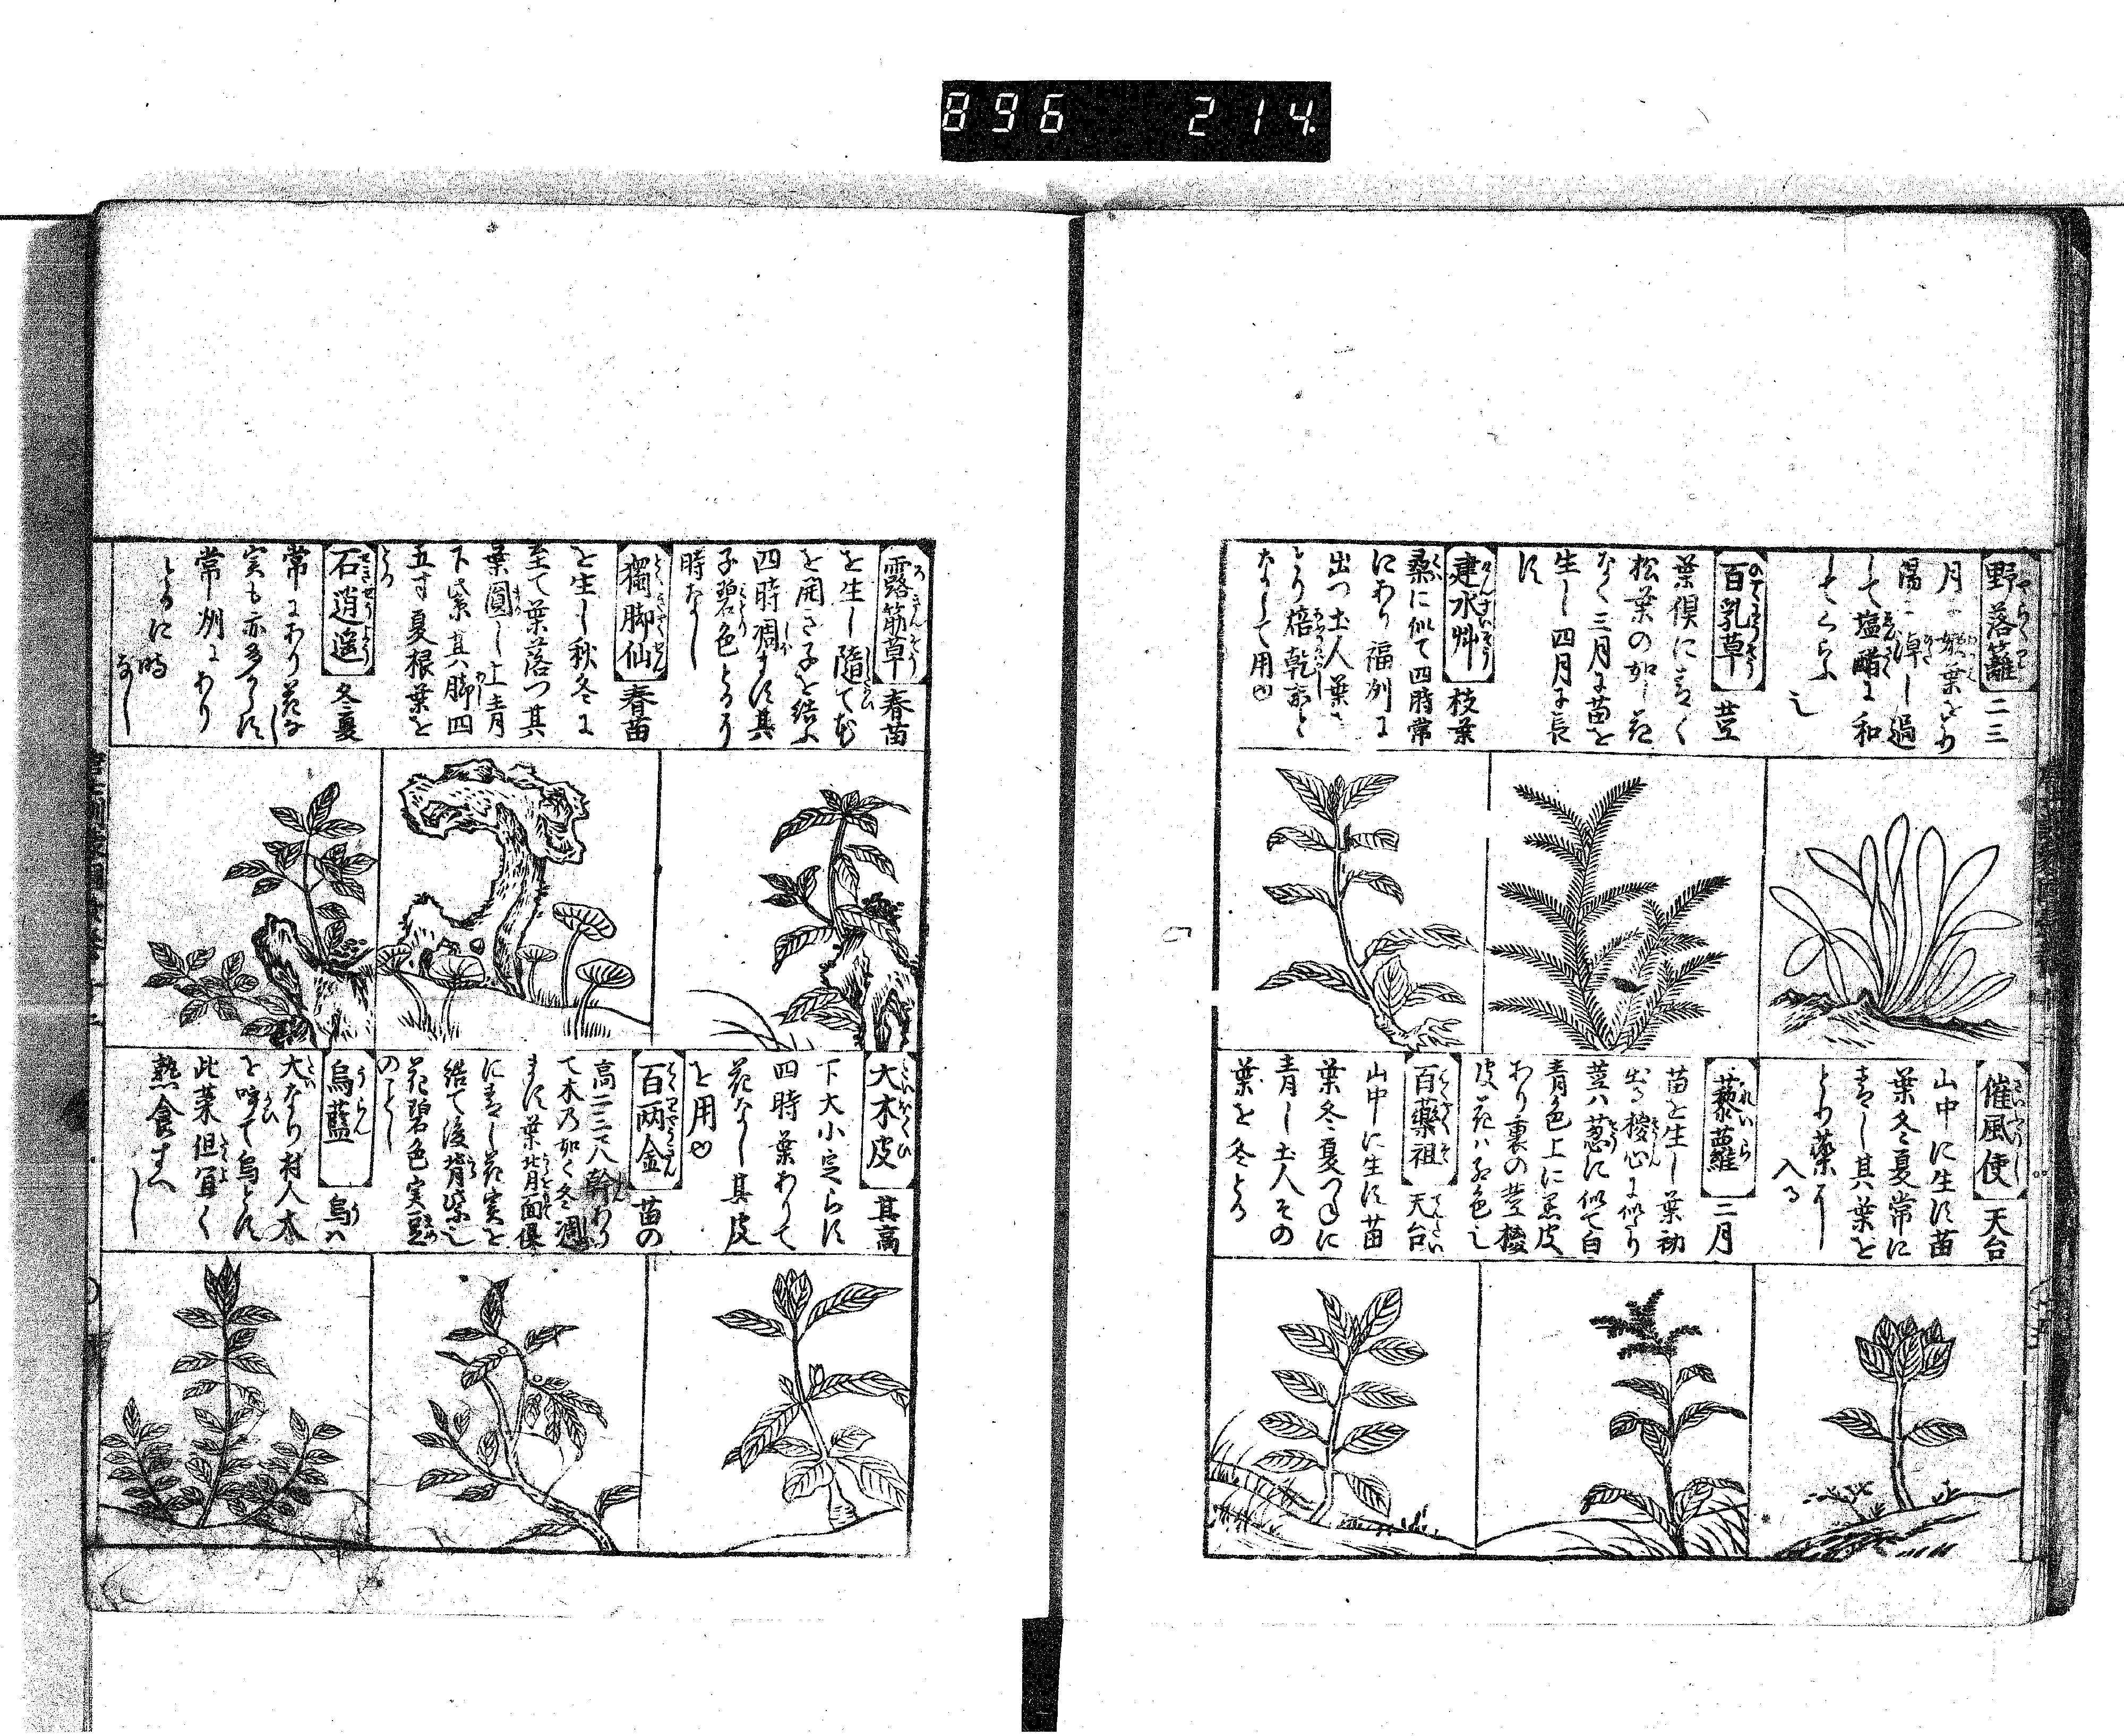 896 214
野落籬 二三
月に嫩葉をとり
湯に淖し過
して塩醋に和
してくらふ
也
百乳草 莖
葉倶に青く
松葉の如し花
なく三月に苗を
生し四月に長
す
建水艸 枝葉
桑に似て四時常
にあり福州に
出つ土人葉を
とり焙乾末と
なして用ゆ
催風使 天台
山中に生す苗
葉冬夏常に
青し其葉を
とり薬に
入る
藜蘿 二月
苗を生し葉初
出る椶心に似たり
莖ハ葱に似て白
青色上に黒皮
あり裏の莖椶
皮花ハ紅色也
百藥祖 天台
山中に生す苗
葉冬夏つねに
青し土人その
葉を冬とる
露筋草 春苗
を生し隨て花
を開き子を結ふ
四時凋ます其
子碧色とるに
時なし
獨脚仙 春苗
を生し秋冬に
至て葉落つ其
葉圓し上青
下紫其ハ脚四
五寸夏根葉を
とる
石逍遥 冬夏
常にあり花な
実も亦多からす
常州にあり
とるに時
なし
大木皮 其高
下大小定らす
四時葉ありて
花なし其皮
を用ゆ
百両金 苗の
高二三尺幹あり
て木乃如く冬凋
ます葉背面倶
に青し花実を
結て後背紫也
花碧色実豆
のことし
烏藍 烏ハ
大なり村人木
を呼て烏とす
此菜但冝く
熟食すへ
し